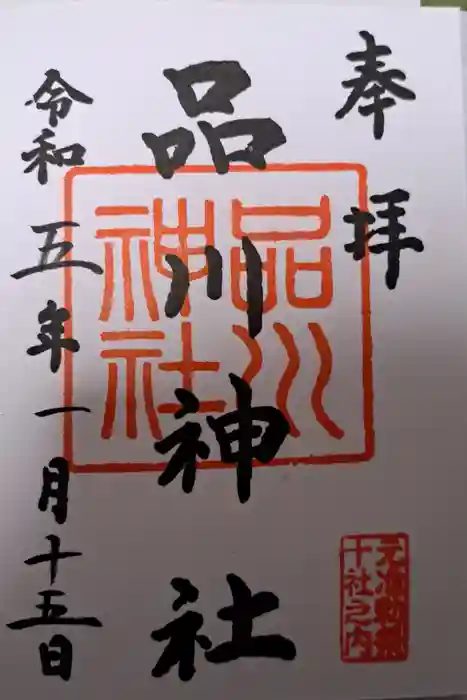 奉拝
品川神社
令和五年一月十五日
品川
神社
元准勅祭
十社之内